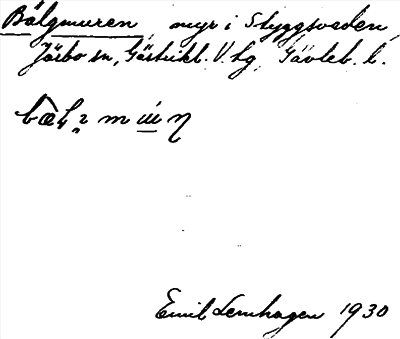 Bälgmuren, myr i Styggsveden,
Järbo sn, Gästrikl. V. hg, Gävleb. l.
Emil Lernhagen 1930